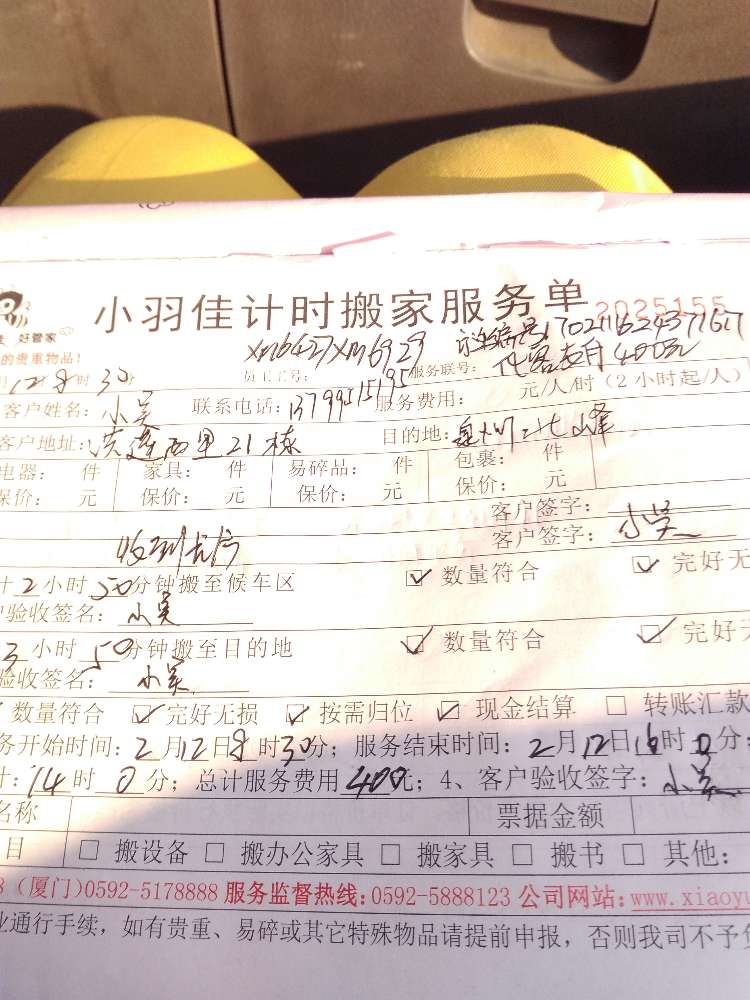 小羽佳计时搬家服务单 2025155
好管家
的贵重物品！
员工工号： xm6427 xm6929 服务联号： 170211624371617
代客支付 400元
月12 8时30分
客户姓名：小吴 联系电话：13799515195 服务费用： 元/人/时（2小时起/人）
客户地址：洪莲西里21栋 目的地：泉州 北峰
电器： 件 家具： 件 易碎品： 件 包裹： 件
保价： 元 保价： 元 保价： 元 保价： 元
客户签字：
收到 客户签字：小吴
计2小时50分钟搬至候车区 ☑数量符合 ☑完好无
户验收签名：小吴
3小时50分钟搬至目的地 ☑数量符合 ☑完好无
验收签名：小吴
数量符合 ☑完好无损 ☑按需归位 ☑现金结算 □转账汇款
务开始时间：2月12日8时30分；服务结束时间：2月12日16时0分；
计：14时0分；总计服务费用400元；4、客户验收签字：小吴
名称 票据金额
目 □搬设备 □搬办公家具 □搬家具 □搬书 □其他：
8（厦门)0592-5178888 服务监督热线：0592-5888123 公司网站：www.xiaoyu
业通行手续，如有贵重、易碎或其它特殊物品请提前申报，否则我司不予